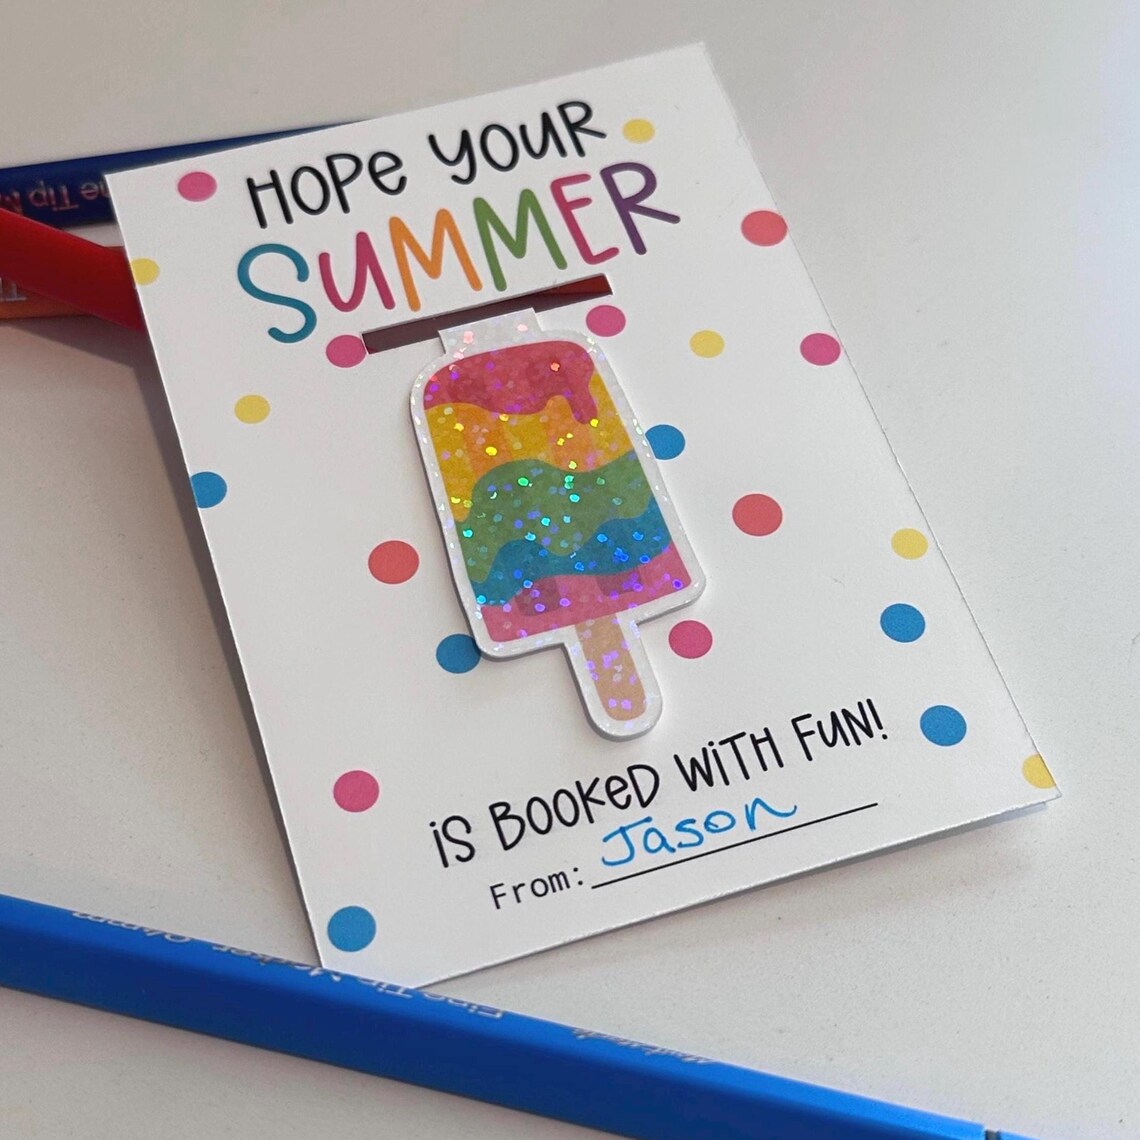 HOPe YOUR
SUMMER
iS BOOKeD WiTH FUN!
From: Jason
Fine Tip Marker